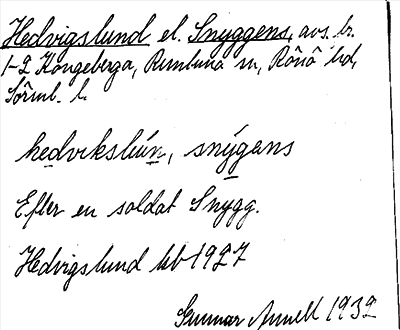 Hedvigslund el. Snyggens, avs. br.
1-2 Kongeberga, Rumtuna sn, Rönö hd,
Sörml. l.
hedvikslún, snýgans
Efter en soldat Snygg.
Hedvigslund kb 1927
Gunnar Annell 1932